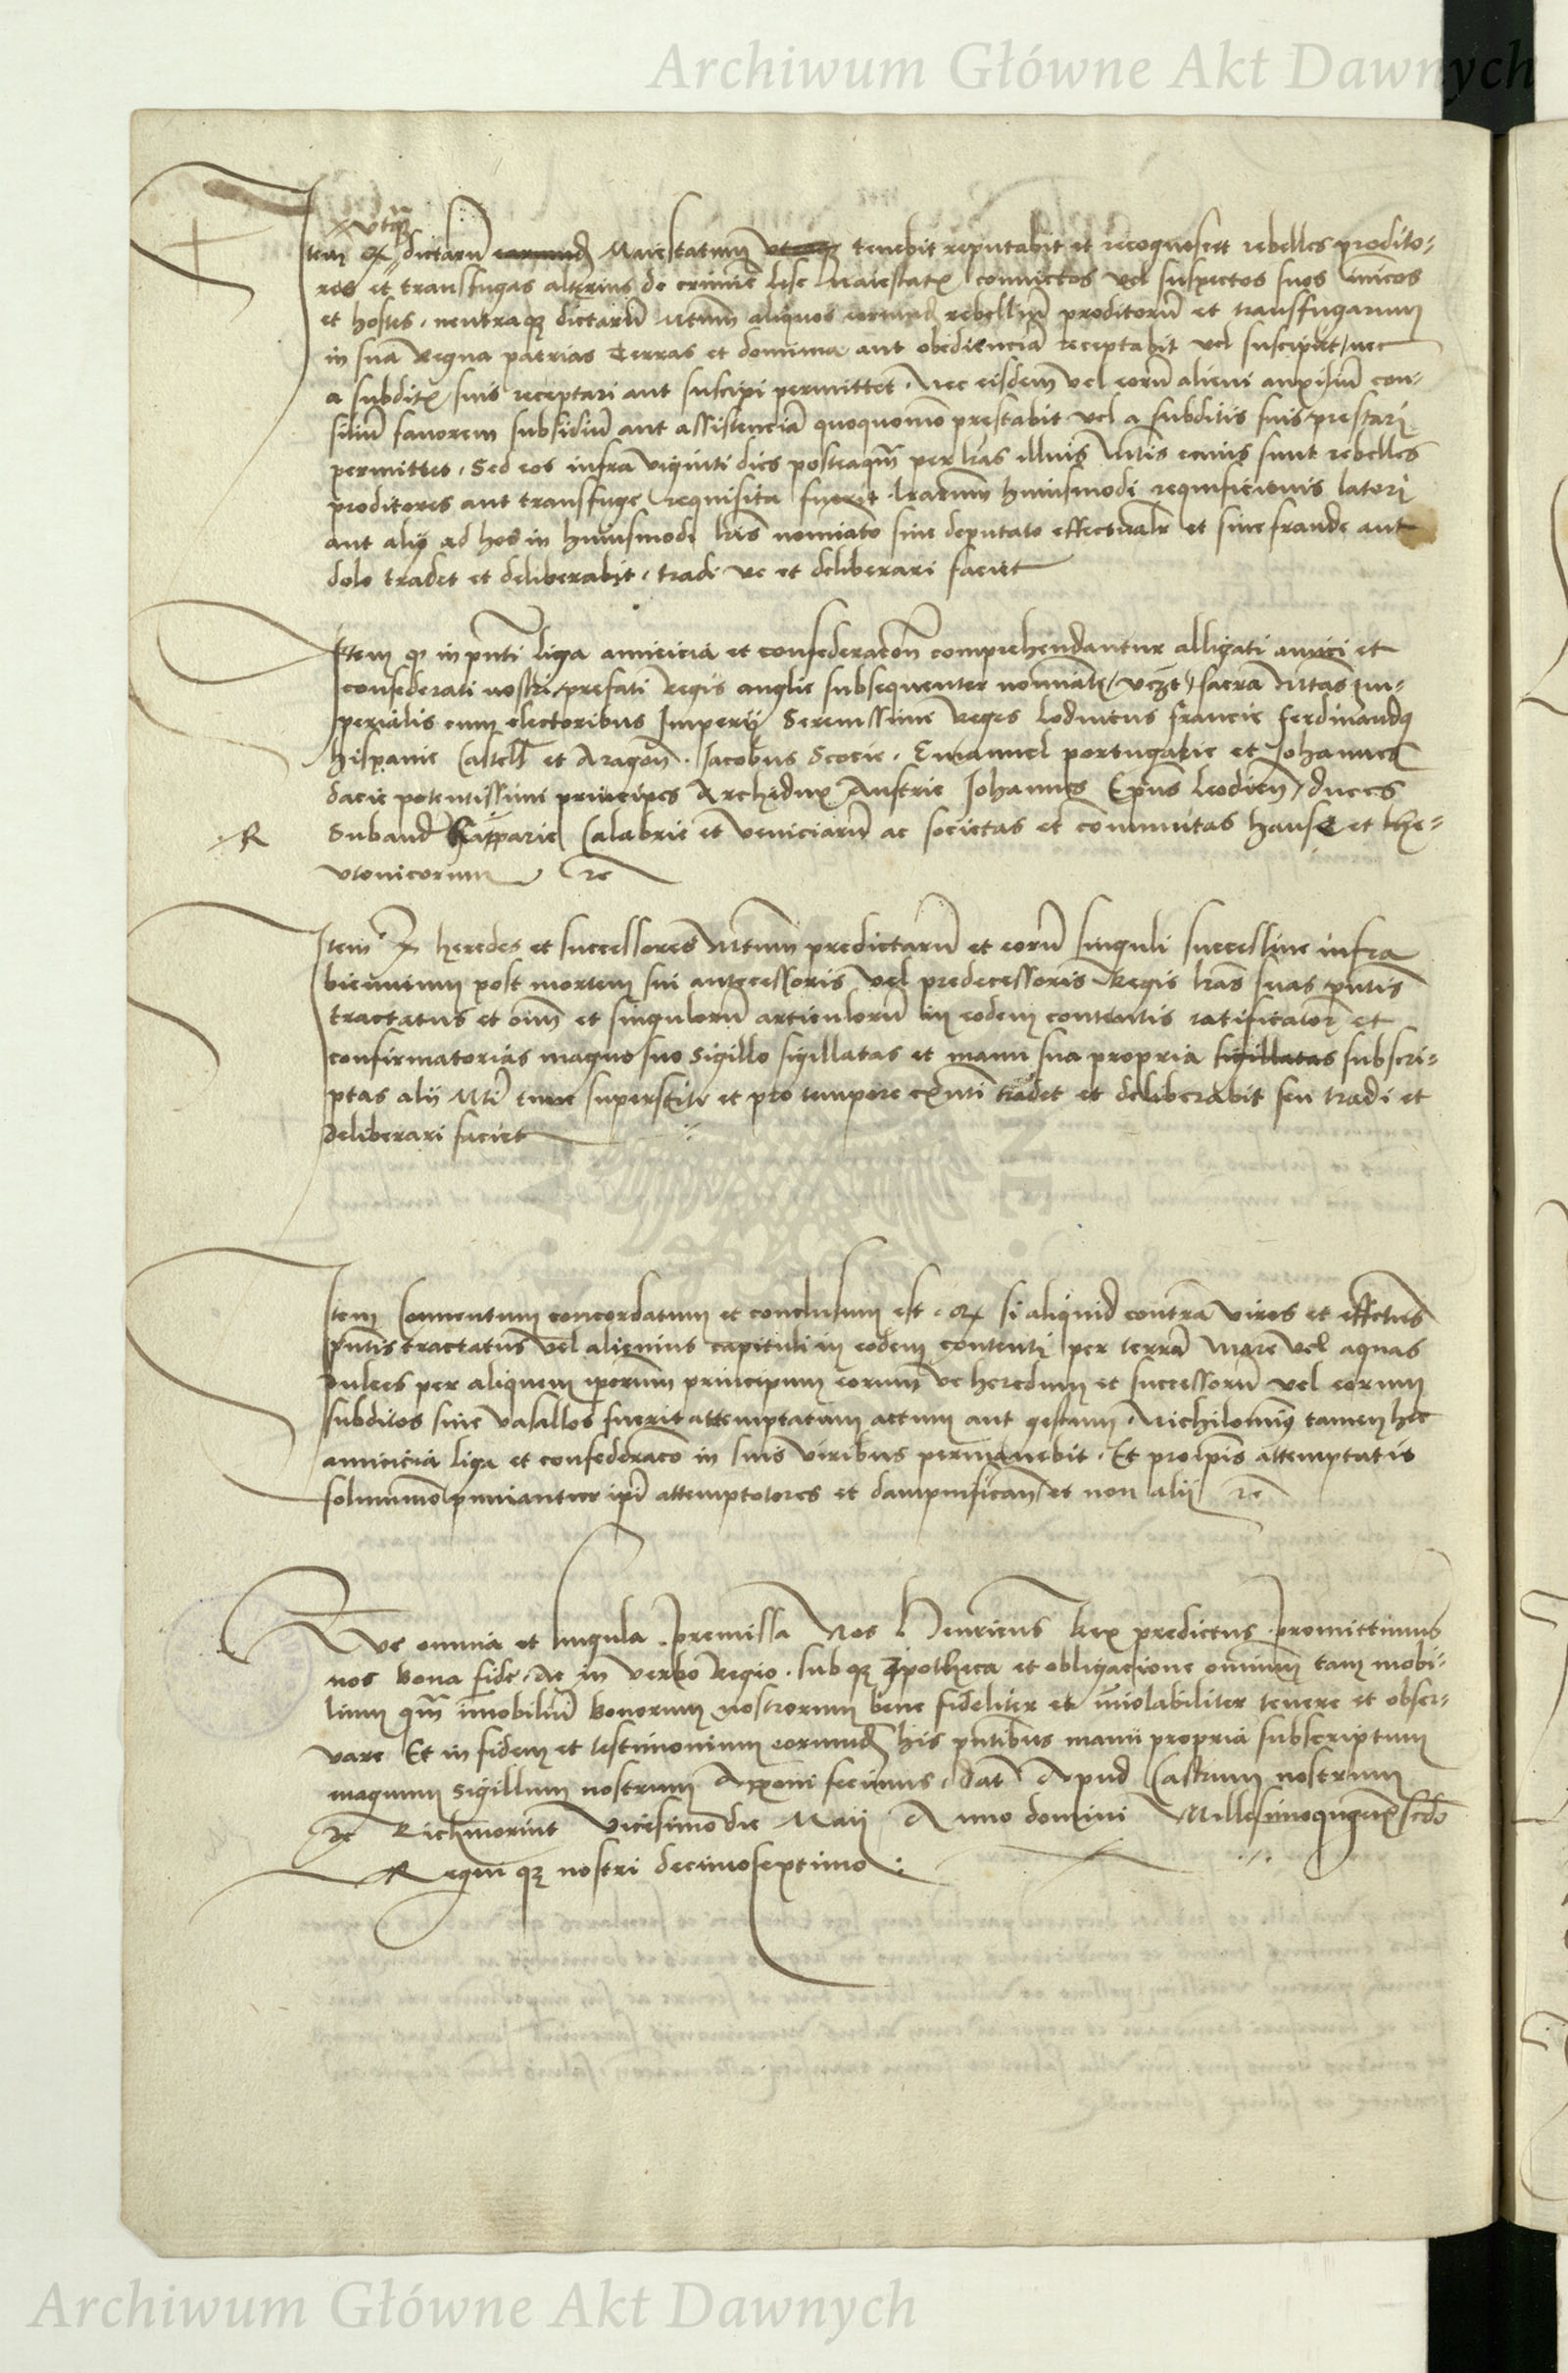 Archiwum Główne Akt Dawnych
utq̃
Item qͫ dictarũ earumd̃ Maiestatum utraq̃ tenebit reputabit et recognoscet rebelles prodito-
res et transfugas alterius de crimĩe lese Maiestatꝭ convictos vel suspectos suos inĩcos
et hostes, neutraqꝫ dictarũ Mtum aliquos eorumd̃ rebelliũ proditorũ et transfugarum
in sua Regna patrias Terras et dominia aut obedienciã receptabit vel suscipiet / nec
a subditꝭ suis receptari aut suscipi permittet. Nec eisdem vel eorũ alicui auxiliũ con-
siliũ favorem subsidiũ aut assistenciã quoquomõ prestabit vel a subditis suis prestari
permittet, Sed eos infra viginti dies posteaqm̃ per lr̃as illius Mtis cuius sunt rebelles
proditores aut transfuge requisita fuerit. lr̃arum huiusmodi requisicionis latori
aut alij ad hoc in huiusmodi lr̃is nomĩato sive deputato effectualr̃ et sine fraude aut
dolo tradet et deliberabit, tradi ve et deliberari faciet
Item qͫ in pñti liga amicicia et confederacoñ comprehendantur alligati amici et
confederati nostri prefati Regis anglie subsequenter nomĩati / vcꝫt / sacra Mtas Im-
perialis cum electoribus Imperij Serenissimi Reges Lodvicus francie ferdinandꝯ
hispanie Castell̃ et Aragoñ. Jacobus Scocie. Emanuel portugalie et Johannes
dacie potentissimi principes Archidux Austrie Johannes Ep̃us Leodieñ / duces
R Subaud̃ Calabrie et veniciarũ ac societas et comunitas hanse et the-
utonicorum ꝛc̃
Item qͫ heredes et successores Mtum predictarũ et eorũ singuli successive infra
biennium post mortem sui antecessoris vel predecessoris Regis lr̃as suas pñtis
tractatus et oim̃ et singulorũ articulorũ in eodem contentis ratificatoꝝ et
confirmatorias magno suo sigillo sigillatas et manu sua propria sigillatas subscri-
ptas alij Mti tunc superstiti et pro tempore exñti tradet et deliberabit seu tradi et
deliberari faciet
Item Conventum concordatum et conclusum est, qͫ si aliquid contra vires et effectus
pñtis tractatus vel alicuius capituli in eodem contenti per terrã Mare vel aquas
dulces per aliquem ip̃orum principum eorum ve heredum et successorũ vel eorum
subditos sive vasallos fuerit attemptatum actum aut gestum, Nichilomĩꝯ tamen hec
amicicia liga et confederacõ in suis viribus permanebit, Et pro ip̃is attemptatis
solummõ puniantur ip̃i attemptatores et dampnificañ / et non alij ꝛc̃
Que omnia et singula premissa Nos Henricus Rex predictus promittimus
nos bona fide, Ac in verbo Regio, sub qꝫ ypotheca et obligacione omnium tam mobi-
lium qm̃ imobiliũ bonorum nostrorum bene fideliter et inviolabiliter tenere et obser-
vare Et in fidem et testimonium eorumd̃ his pñtibus manu propria subscriptum
magnum sigillum nostrum Apponi fecimus, Dat̃ Apud Castrum nostrum
de Richmount Vicesimo die Maij Anno domini Millesimoqugentꝭ scđo
Regni qꝫ nostri decimoseptimo
Archiwum Główne Akt Dawnych